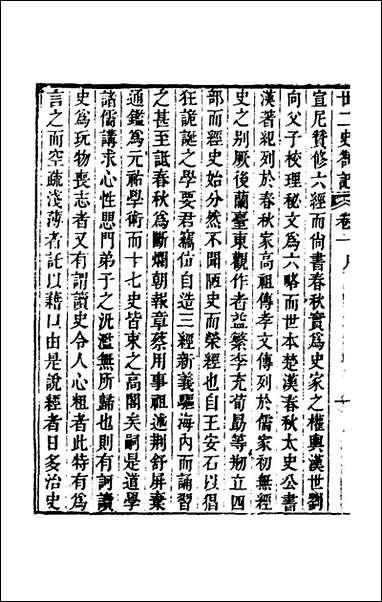 廿二史劄記 卷一 序
宣尼贊修六經而尚書春秋實爲史家之權輿漢世劉
向父子校理秘文爲六略而世本楚漢春秋太史公書
漢著紀列於春秋家高祖傳孝文傳列於儒家初無經
史之别厥後蘭臺東觀作者益繁李充荀勗等刱立四
部而經史始分然不聞陋史而榮經也自王安石以倡
狂詭誕之學要君竊位自造三經新義驅海内而誦習
之甚至詆春秋爲斷爛朝報章蔡用事祖述荆舒屏棄
通鑑爲元祐學術而十七史皆束之高閣矣嗣是道學
諸儒講求心性思門弟子之汎濫無所歸也則有訶讀
史爲玩物喪志者又有謂讀史令人心粗者此特有爲
言之而空疏淺薄者託以藉口由是說經者日多治史